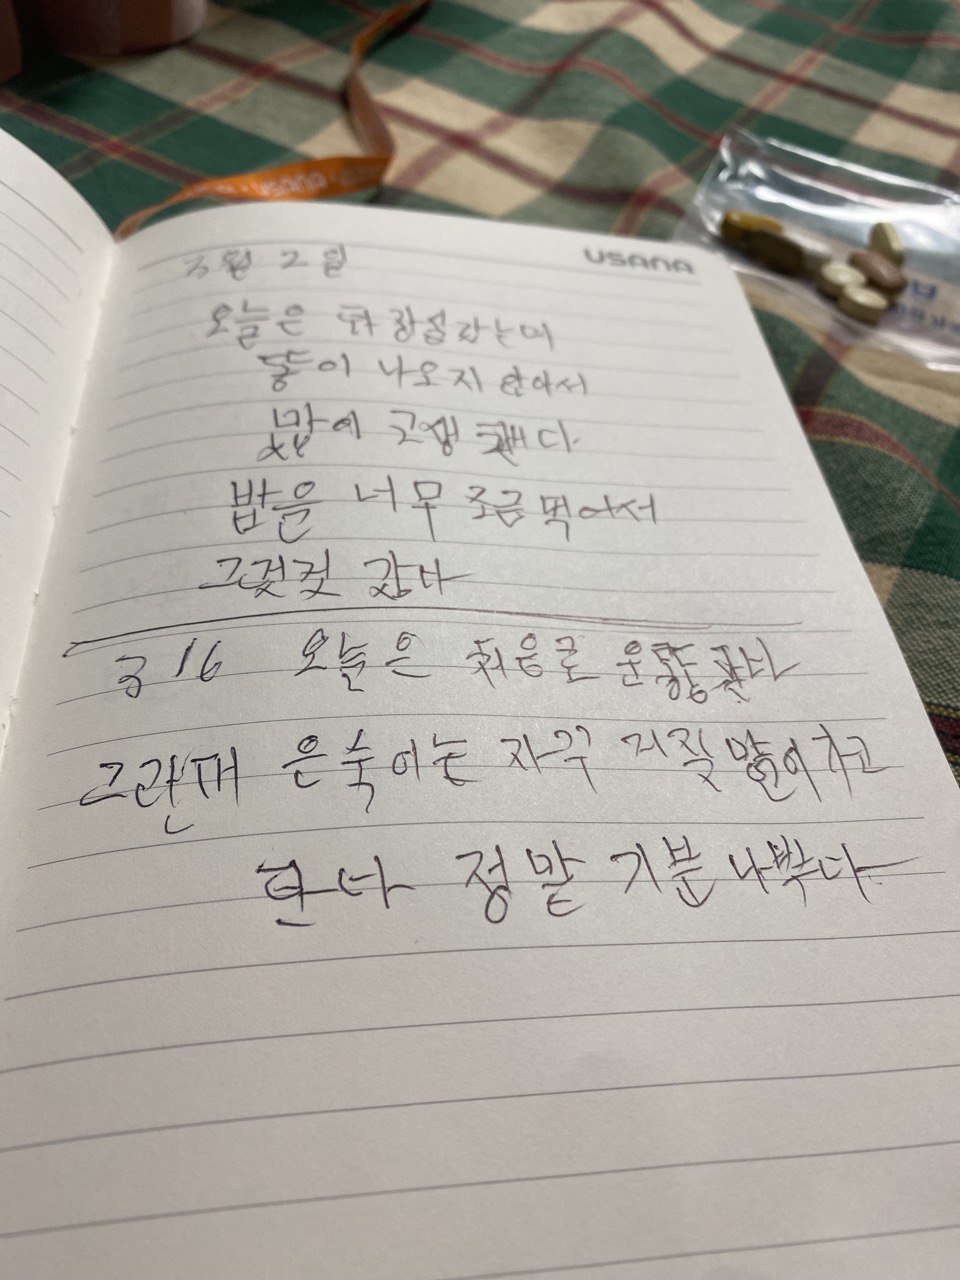 USANA
USANA
3월 2일
오늘은 화장실 갔는데
똥이 나오지 안아서
밤에 고생 했다.
밥을 너무 조금 먹어서
그런것 갔다
3 16 오늘은 처음로 운동
그란데 은숙이는 자꾸 거짓말이라고
한다 정말 기분 나쁘다